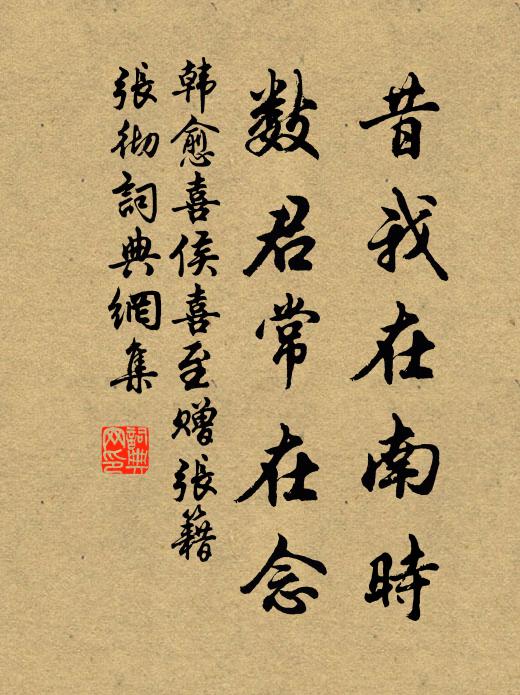 昔我在南時
數君常在念
韓愈喜侯喜至贈張籍
張徹詞典網集
詞典
网印